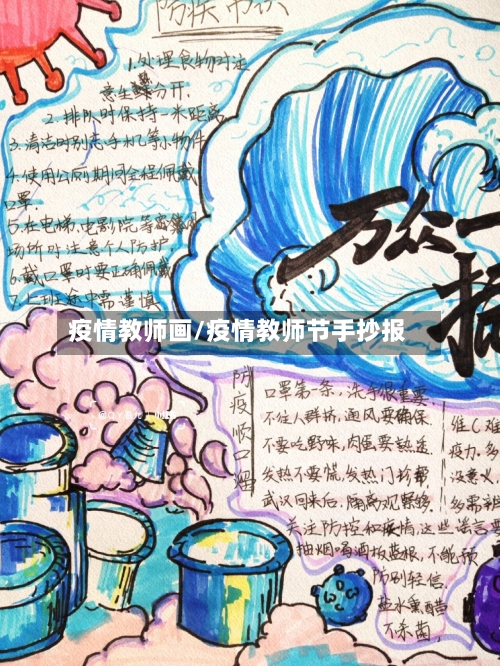 防疫常识
1.处理食物时注
意生熟分开.
2.排队时保持一米距离
3.清洁时别忘手机等小物件
4.使用公厕期间全程佩戴
口罩.
5.在电梯、电影院等密集
场所时注意个人防护
6.戴口罩时要正确佩戴
7.上班途中需谨慎
万众一
疫情教师画/疫情教师节手抄报
防疫顺口溜
口罩第一条,洗手很重要.
不往人群挤,通风要确保.
不要吃野味,肉蛋要熟透.
发热不要慌,发热门诊
武汉回来后,隔离观察
关注防控和疫情,这些谣言
抽烟喝酒板蓝根,不能预
防别轻信.
盐水熏醋
不杀菌,
维C难
疫力.多
没意义
多需